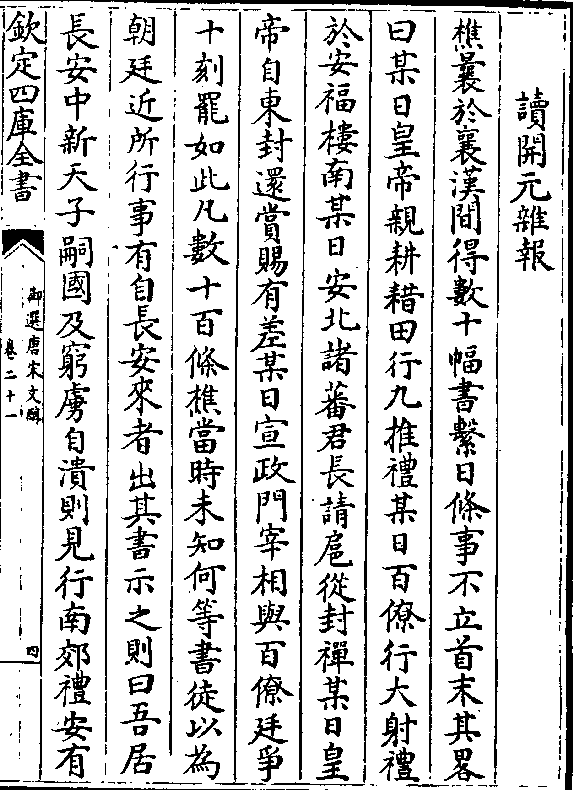 讀開元雜報
樵曩於襄漢間得數十幅書繫日條事不立首末其畧
曰某日皇帝親耕耤田行九推禮某日百僚行大射禮
於安福樓南某日安北諸蕃君長請扈從封禪某日皇
帝自東封還賞賜有差某日宣政門宰相與百僚廷爭
十刻罷如此凡數十百條樵當時未知何等書徒以為
朝廷近所行事有自長安來者出其書示之則曰吾居
長安中新天子嗣國及窮虜自潰則見行南郊禮安有
欽定四庫全書
御選唐宋文醇
卷二十一
四